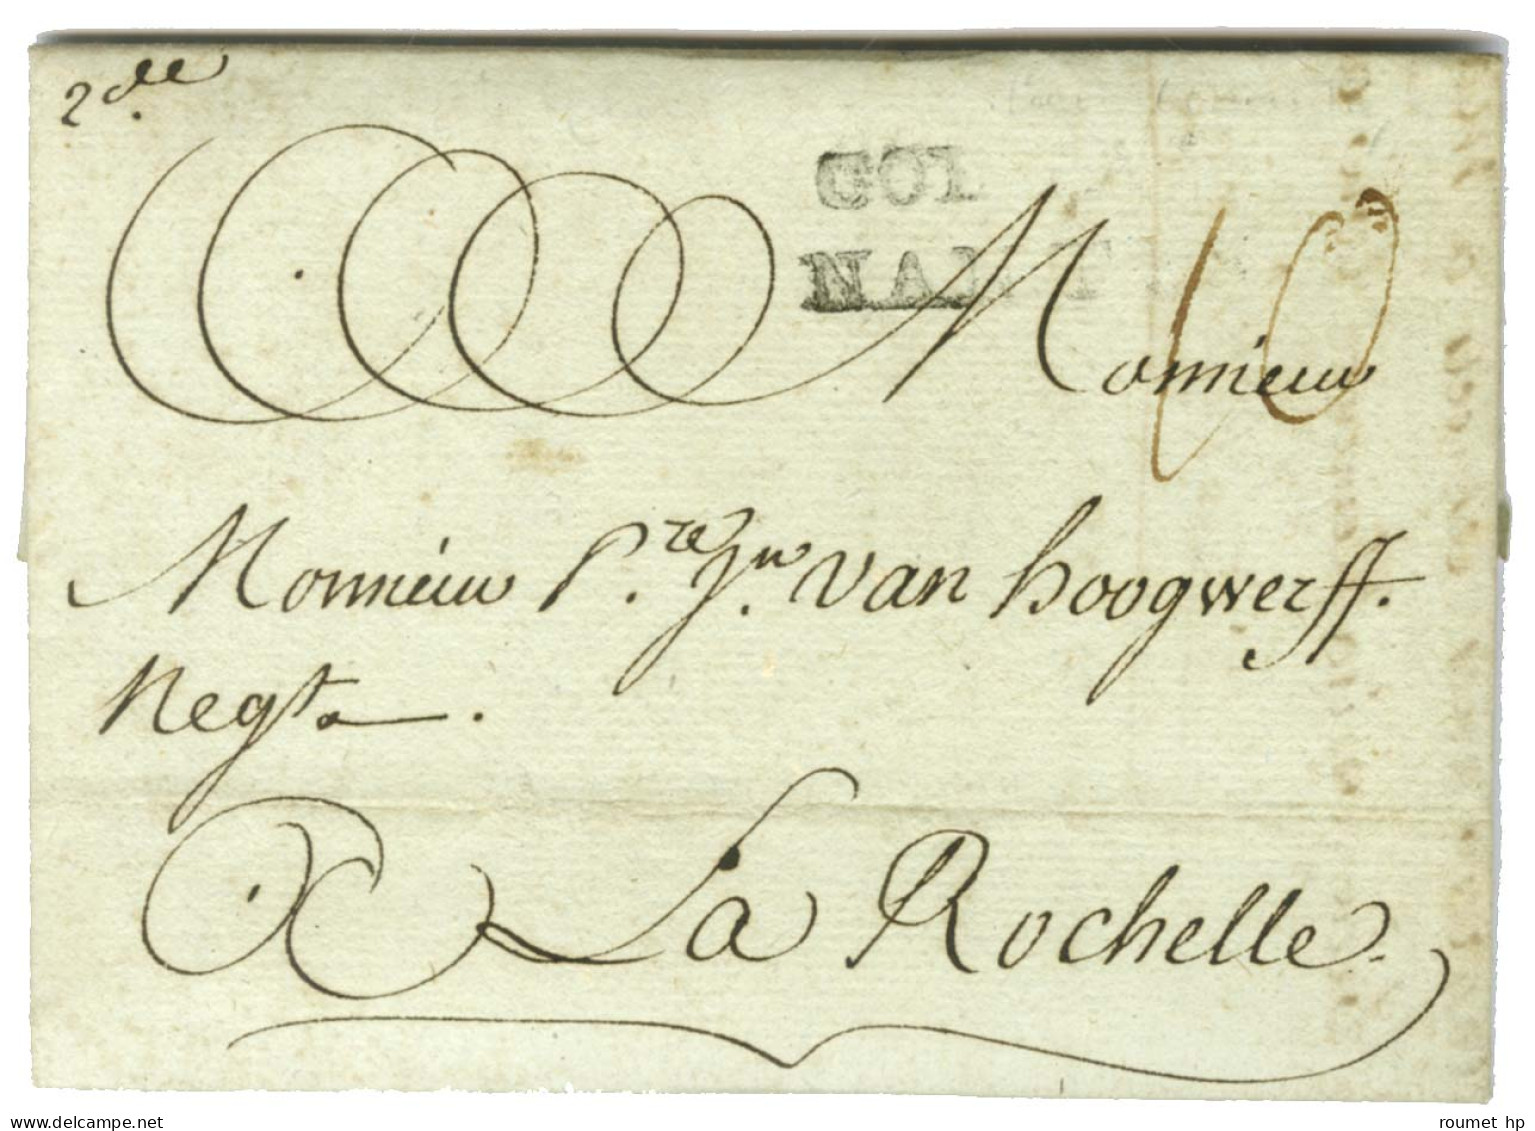 2de.
COL
NANT
10
Monsieur
Monsieur P.re Jn. van hoogwerff.
Negt.
La Rochelle.
www.delcampe.net
roumet hp